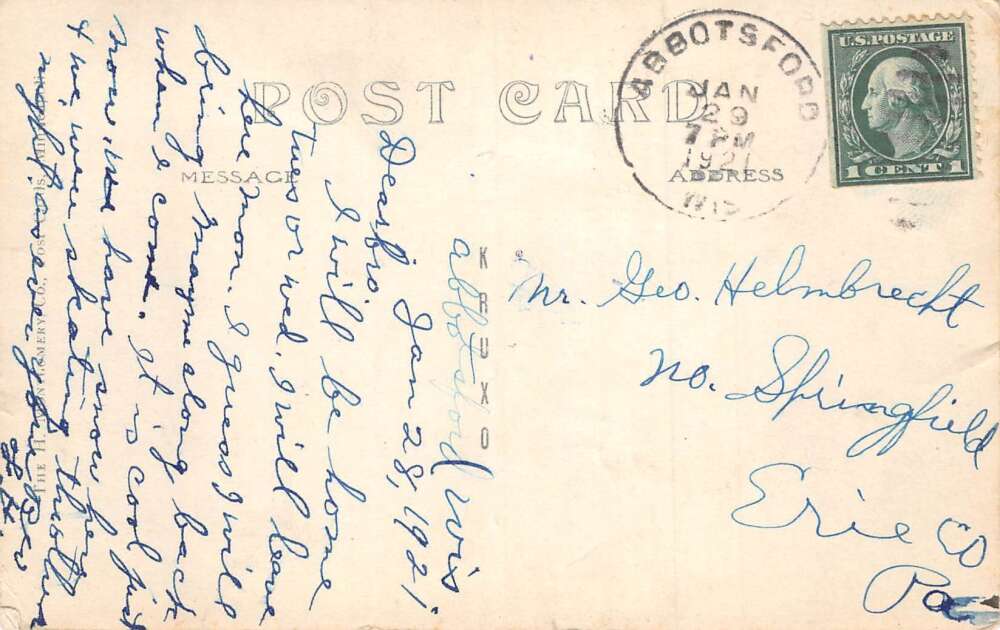 POST CARD
MESSAGE
ADDRESS
ABBOTSFORD
JAN
29
7 PM
1921
WIS
U.S. POSTAGE
1 CENT 1
KRUXO
THE H. MONTGOMERY CO.,
Abbotsford Wis
Jan 28, 1921
Dear bro
I will be home
tues or wed, I will leave
here mon. I guess I will
bring Mayme along back
when I come. It is cool just
now we have snow here
& we were skating
night. as ever your
H.
Mr. Geo. Helmbrecht
No. Springfield
Erie Co
Pa